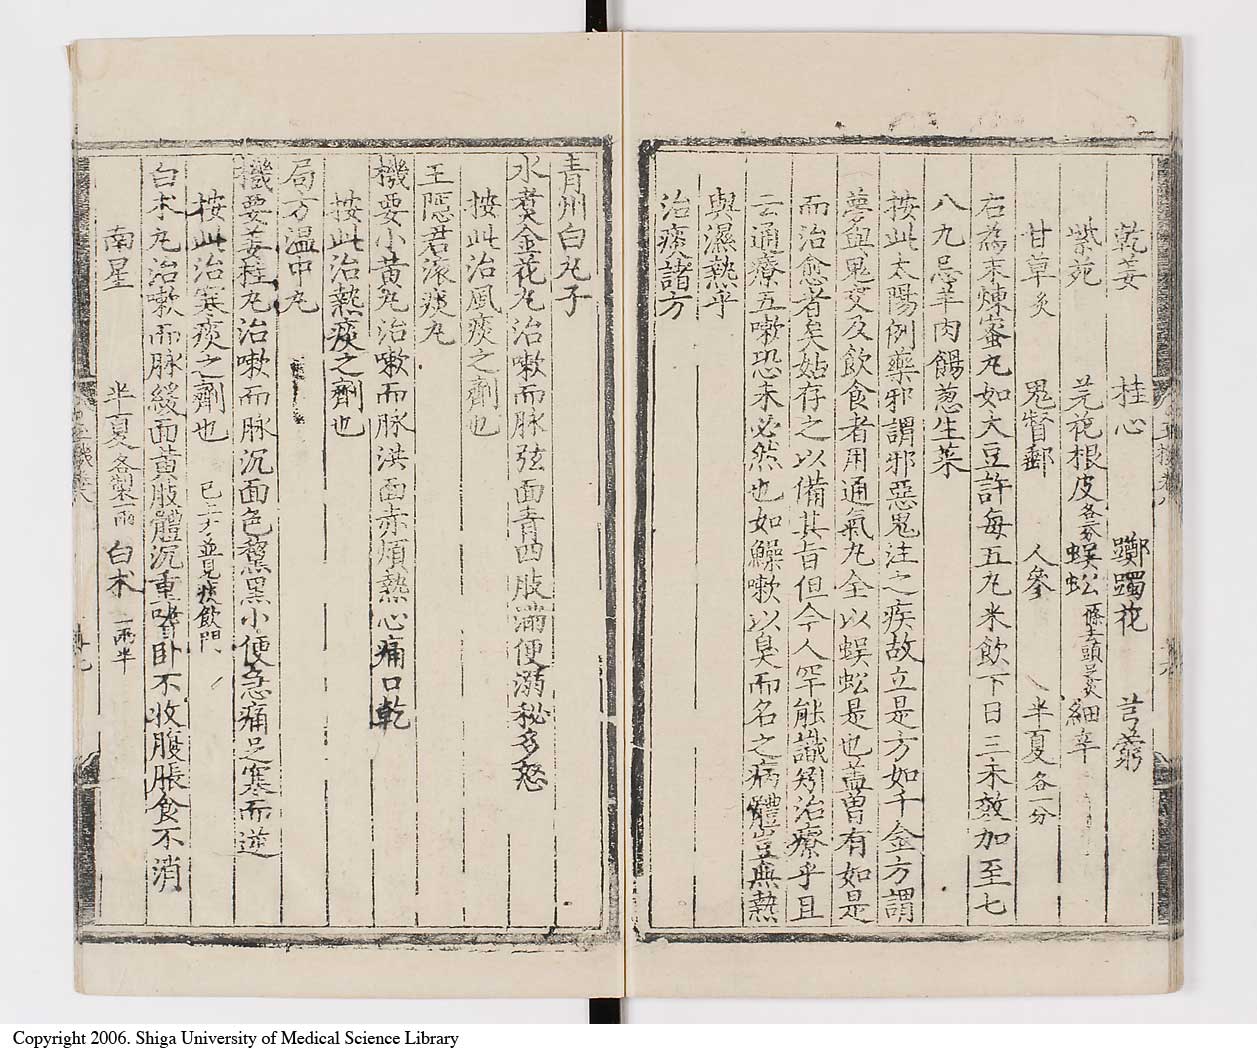 乾姜 桂心 躑躅花 芎藭
紫苑 芫花根皮各二分 蜈蚣一條去頭足炙 細辛
甘草炙 鬼督郵 人參 半夏各一分
右為末煉蜜丸如大豆許每五丸米飲下日三未效加至七
八九忌羊肉餳葱生菜
按此太陽例藥邪謂邪惡鬼注之疾故立是方如千金方謂
夢與鬼交及飲食者用通氣丸全以蜈蚣是也蓋曾有如是
而治愈者矣姑存之以備其旨但今人罕能識矧治療乎且
云通療五嗽恐未必然也如鱢嗽以臭而名之病體豈無熱
與濕熱乎
治痰諸方
青州白丸子
水煮金花丸治嗽而脉弦面青四肢滿便溺秘多怒
按此治風痰之劑也
王隱君滚痰丸
機要小黃丸治嗽而脉洪面赤煩熱心痛口乾
按此治熱痰之劑也
局方溫中丸
機要姜桂丸治嗽而脉沉面色黧黑小便急痛足寒而逆
按此治寒痰之劑也 已上方並見痰飲門
白术丸治嗽而脉緩面黃肢體沉重嗜卧不收腹脹食不消
南星 半夏各製一兩 白术一兩半
Copyright 2006. Shiga University of Medical Science Library